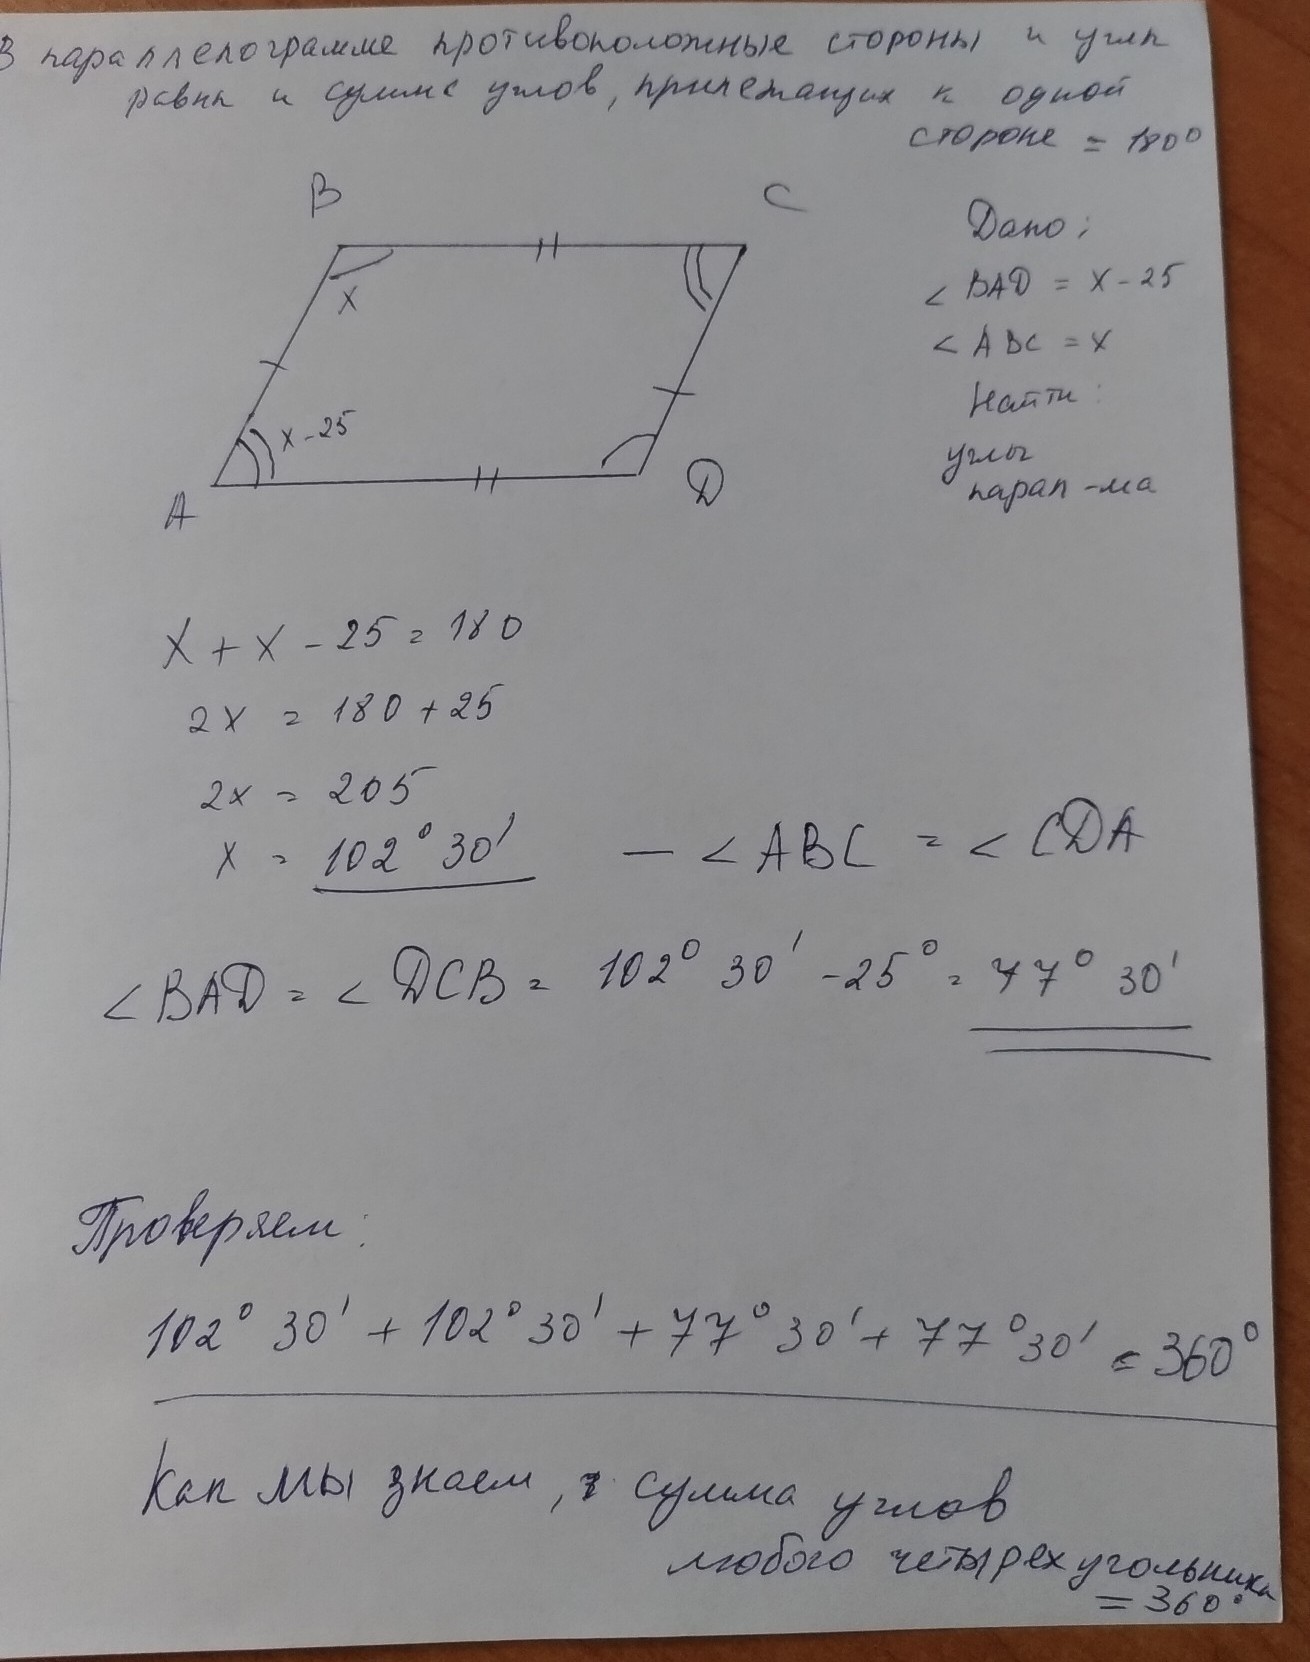 В параллелограмме противоположные стороны и углы
равны и сумма углов, прилежащих к одной
стороне = 180°
B
C
Дано:
∠ BAD = x - 25
∠ ABC = x
Найти:
углы
парал-ма
x
x - 25
A
D
x + x - 25 = 180
2x = 180 + 25
2x = 205
x = 102° 30' — ∠ ABC = ∠ CDA
∠ BAD = ∠ DCB = 102° 30' - 25° = 77° 30'
Проверяем:
102° 30' + 102° 30' + 77° 30' + 77° 30' = 360°
Как мы знаем, сумма углов
любого четырехугольника
= 360°